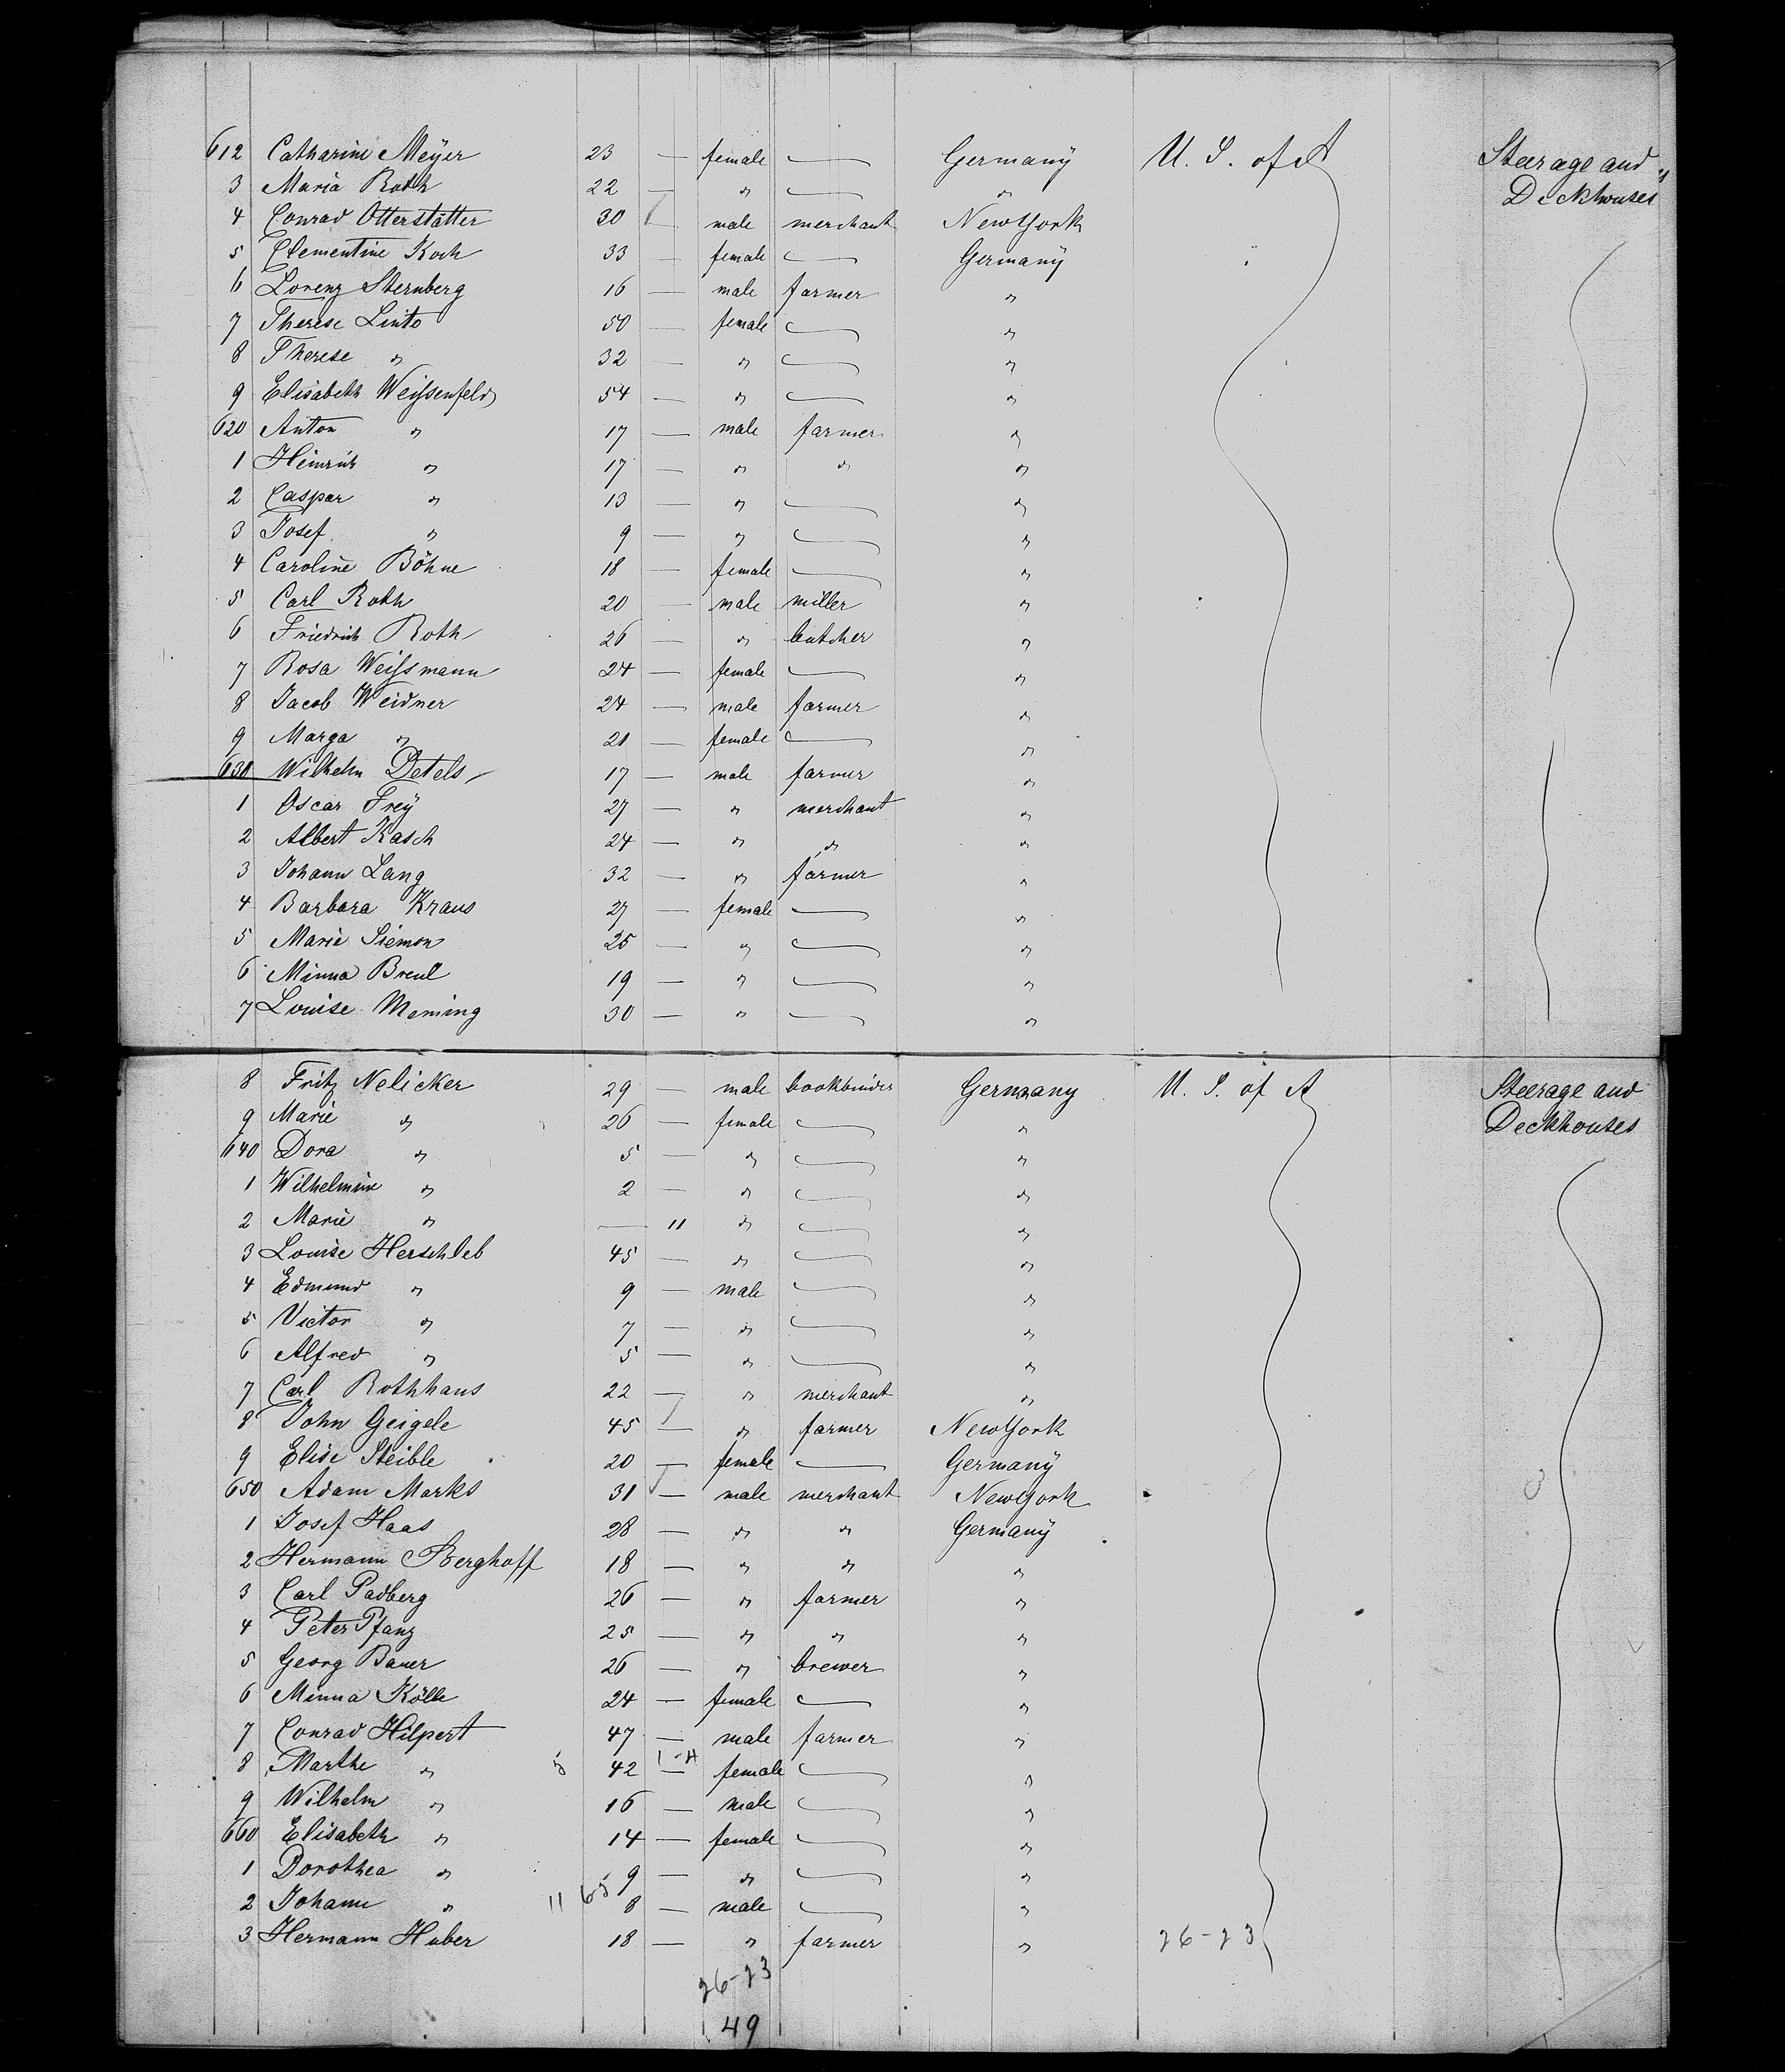 612 Catharine Meÿer 23 — female — Germanÿ U. S. of A Steerage and
3 Maria Roth 22 — " — " Deckhouses
4 Conrad Otterstätter 30 — male merchant New York
5 Clementine Koch 33 — female — Germanÿ
6 Lorenz Sternberg 16 — male farmer "
7 Therese Linto 50 — female — "
8 Therese " 32 — " — "
9 Elisabeth Weißenfeld 54 — " — "
620 Anton " 17 — male farmer "
1 Heinrich " 17 — " " "
2 Caspar " 13 — " — "
3 Josef " 9 — " — "
4 Caroline Böhne 18 — female — "
5 Carl Roth 20 — male miller "
6 Friedrich Roth 26 — " butcher "
7 Rosa Weißmann 24 — female — "
8 Jacob Weidner 24 — male farmer "
9 Marga " 21 — female — "
630 Wilhelm Detels 17 — male farmer "
1 Oscar Freÿ 27 — " merchant "
2 Albert Kasch 24 — " " "
3 Johann Lang 32 — " farmer "
4 Barbara Kraus 27 — female — "
5 Marie Siemon 25 — " — "
6 Minna Breul 19 — " — "
7 Louise Mening 30 — " — "
8 Fritz Nelicker 29 — male bookbinder Germany U. S. of A Steerage and
9 Marie " 26 — female — " Deckhouses
640 Dora " 5 — " — "
1 Wilhelmine " 2 — " — "
2 Marie " — 11 " — "
3 Louise Herschleb 45 — " — "
4 Edmund " 9 — male — "
5 Victor " 7 — " — "
6 Alfred " 5 — " — "
7 Carl Rothhaus 22 — " merchant "
8 John Geigele 45 — " farmer New York
9 Elise Steible 20 — female — Germanÿ
650 Adam Marks 31 — male merchant New York
1 Josef Haas 28 — " " Germanÿ
2 Hermann Berghoff 18 — " " "
3 Carl Padberg 26 — " farmer "
4 Peter Pfanz 25 — " " "
5 Georg Bauer 26 — " brewer "
6 Minna Kölle 24 — female — "
7 Conrad Hilpert 47 — male farmer "
8 Marthe " 5 42 — female — "
9 Wilhelm " 16 — male — "
660 Elisabeth " 14 — female — "
1 Dorothea " 9 — " — "
2 Johann " 11 65 8 — male — "
3 Hermann Huber 18 — " farmer " 26-23
26-23
49